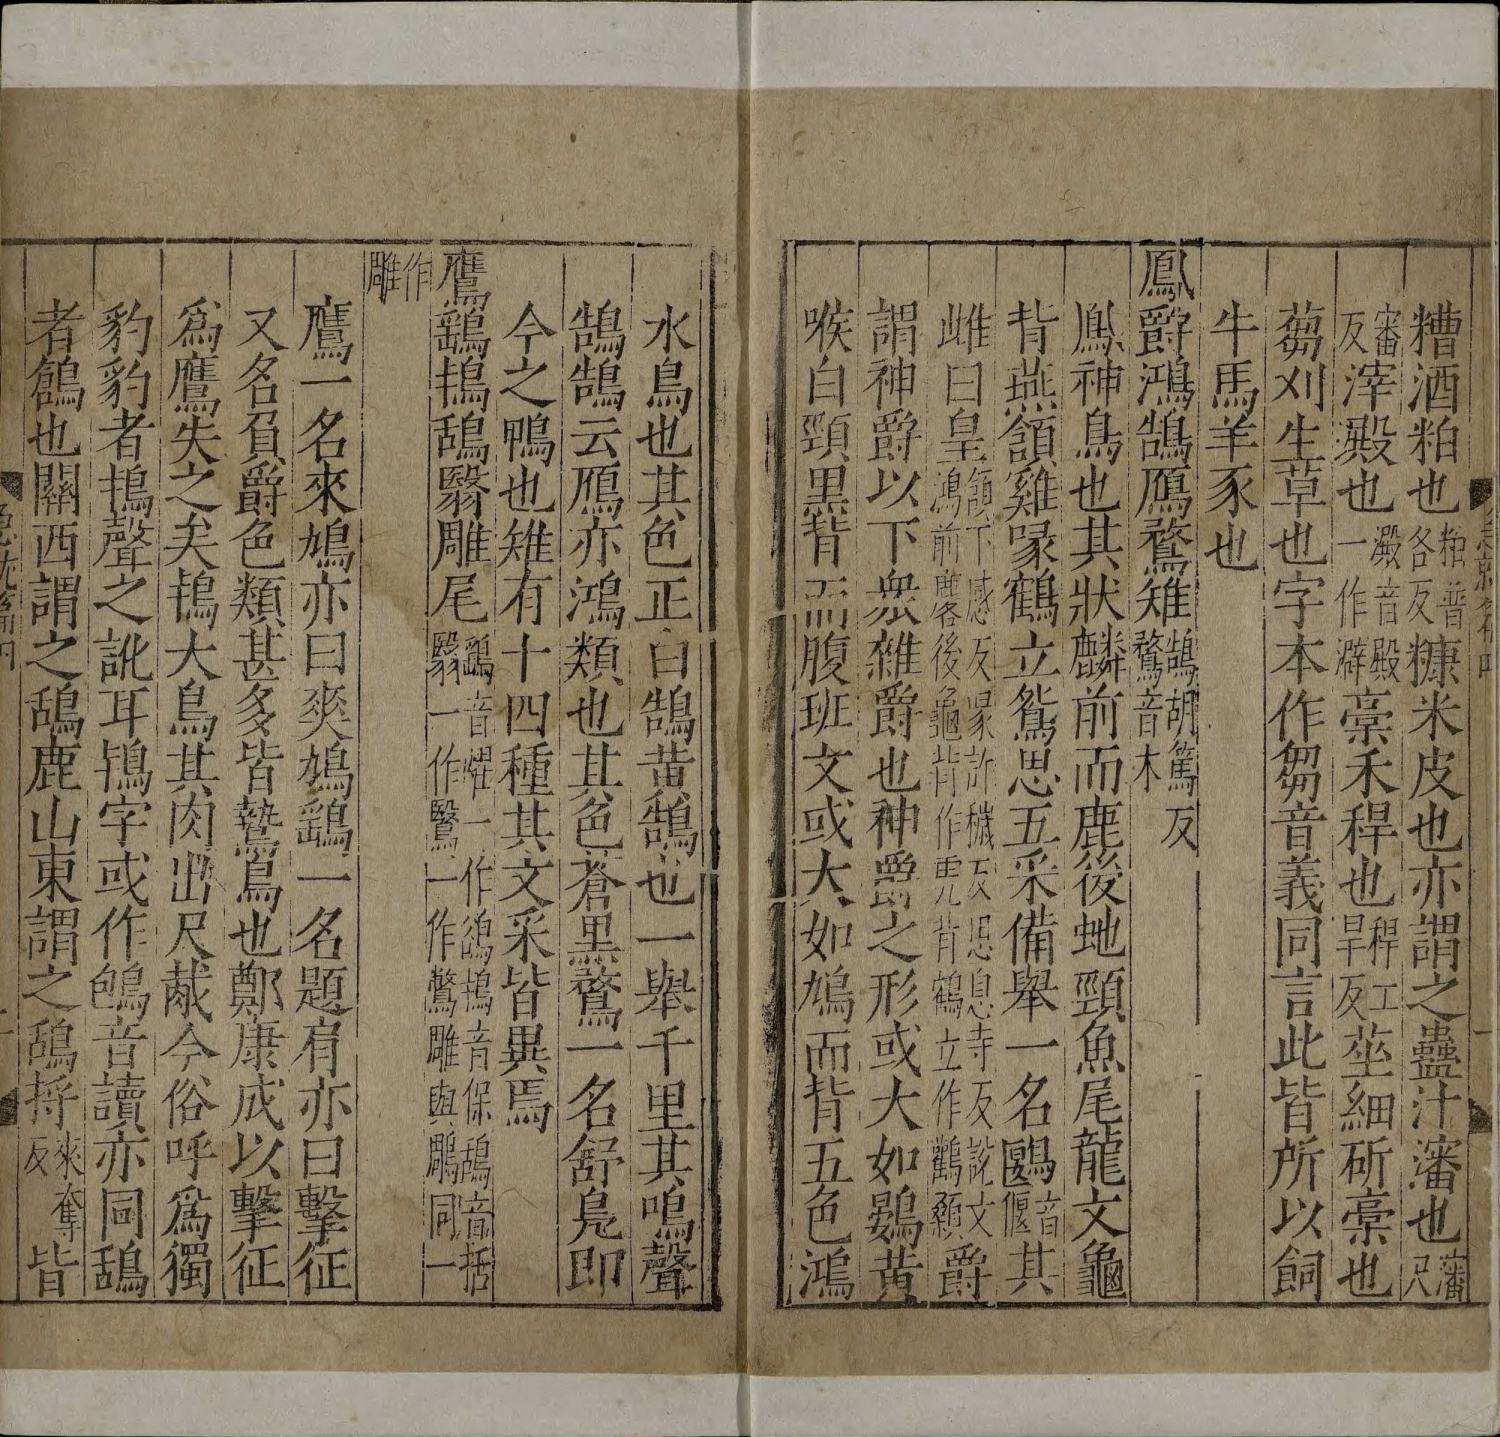 糟酒粕也粕普各反糠米皮也亦謂之蠱汁瀋也瀋尺
審反滓澱也澱音殿一作澼稾禾稈也稈工旱反莝細斫稾也
蒭刈生草也字本作芻音義同言此皆所以飼
牛馬羊豕也
鳳爵鴻鵠鴈鶩雉鵠胡篤反鶩音木
鳳神鳥也其狀麟前而鹿後虵頸魚尾龍文龜
背燕頷雞喙鶴立鴛思五采備舉一名鶠音偃其
雌曰皇頷下感反喙許穢反思息寺反說文鴻前麐後龜背作兕背鶴立作鸛顙爵
謂神爵以下衆雜爵也神爵之形或大如鷃黃
喉白頸黑背而腹班文或大如鳩而背五色鴻
水鳥也其色正白鵠黃鵠也一舉千里其鳴聲
鵠鵠云鴈亦鴻類也其色蒼黑鶩一名舒鳧即
今之鴨也雉有十四種其文采皆異焉
鷹鷂鴇鴰翳雕尾鷂音燿一作鷂鴇音保鴰音括翳一作鷖一作鷩雕與鵰同一
作雕
鷹一名來鳩亦曰爽鳩鷂一名題肩亦曰擊征
又名負爵色類甚多皆鷙鳥也鄭康成以擊征
爲鷹失之矣鴇大鳥其肉出尺胾今俗呼爲獨
豹豹者鴇聲之訛耳鴇字或作鴇音讀亦同鴰
者鶬也關西謂之鴰鹿山東謂之鴰捋來奪反皆